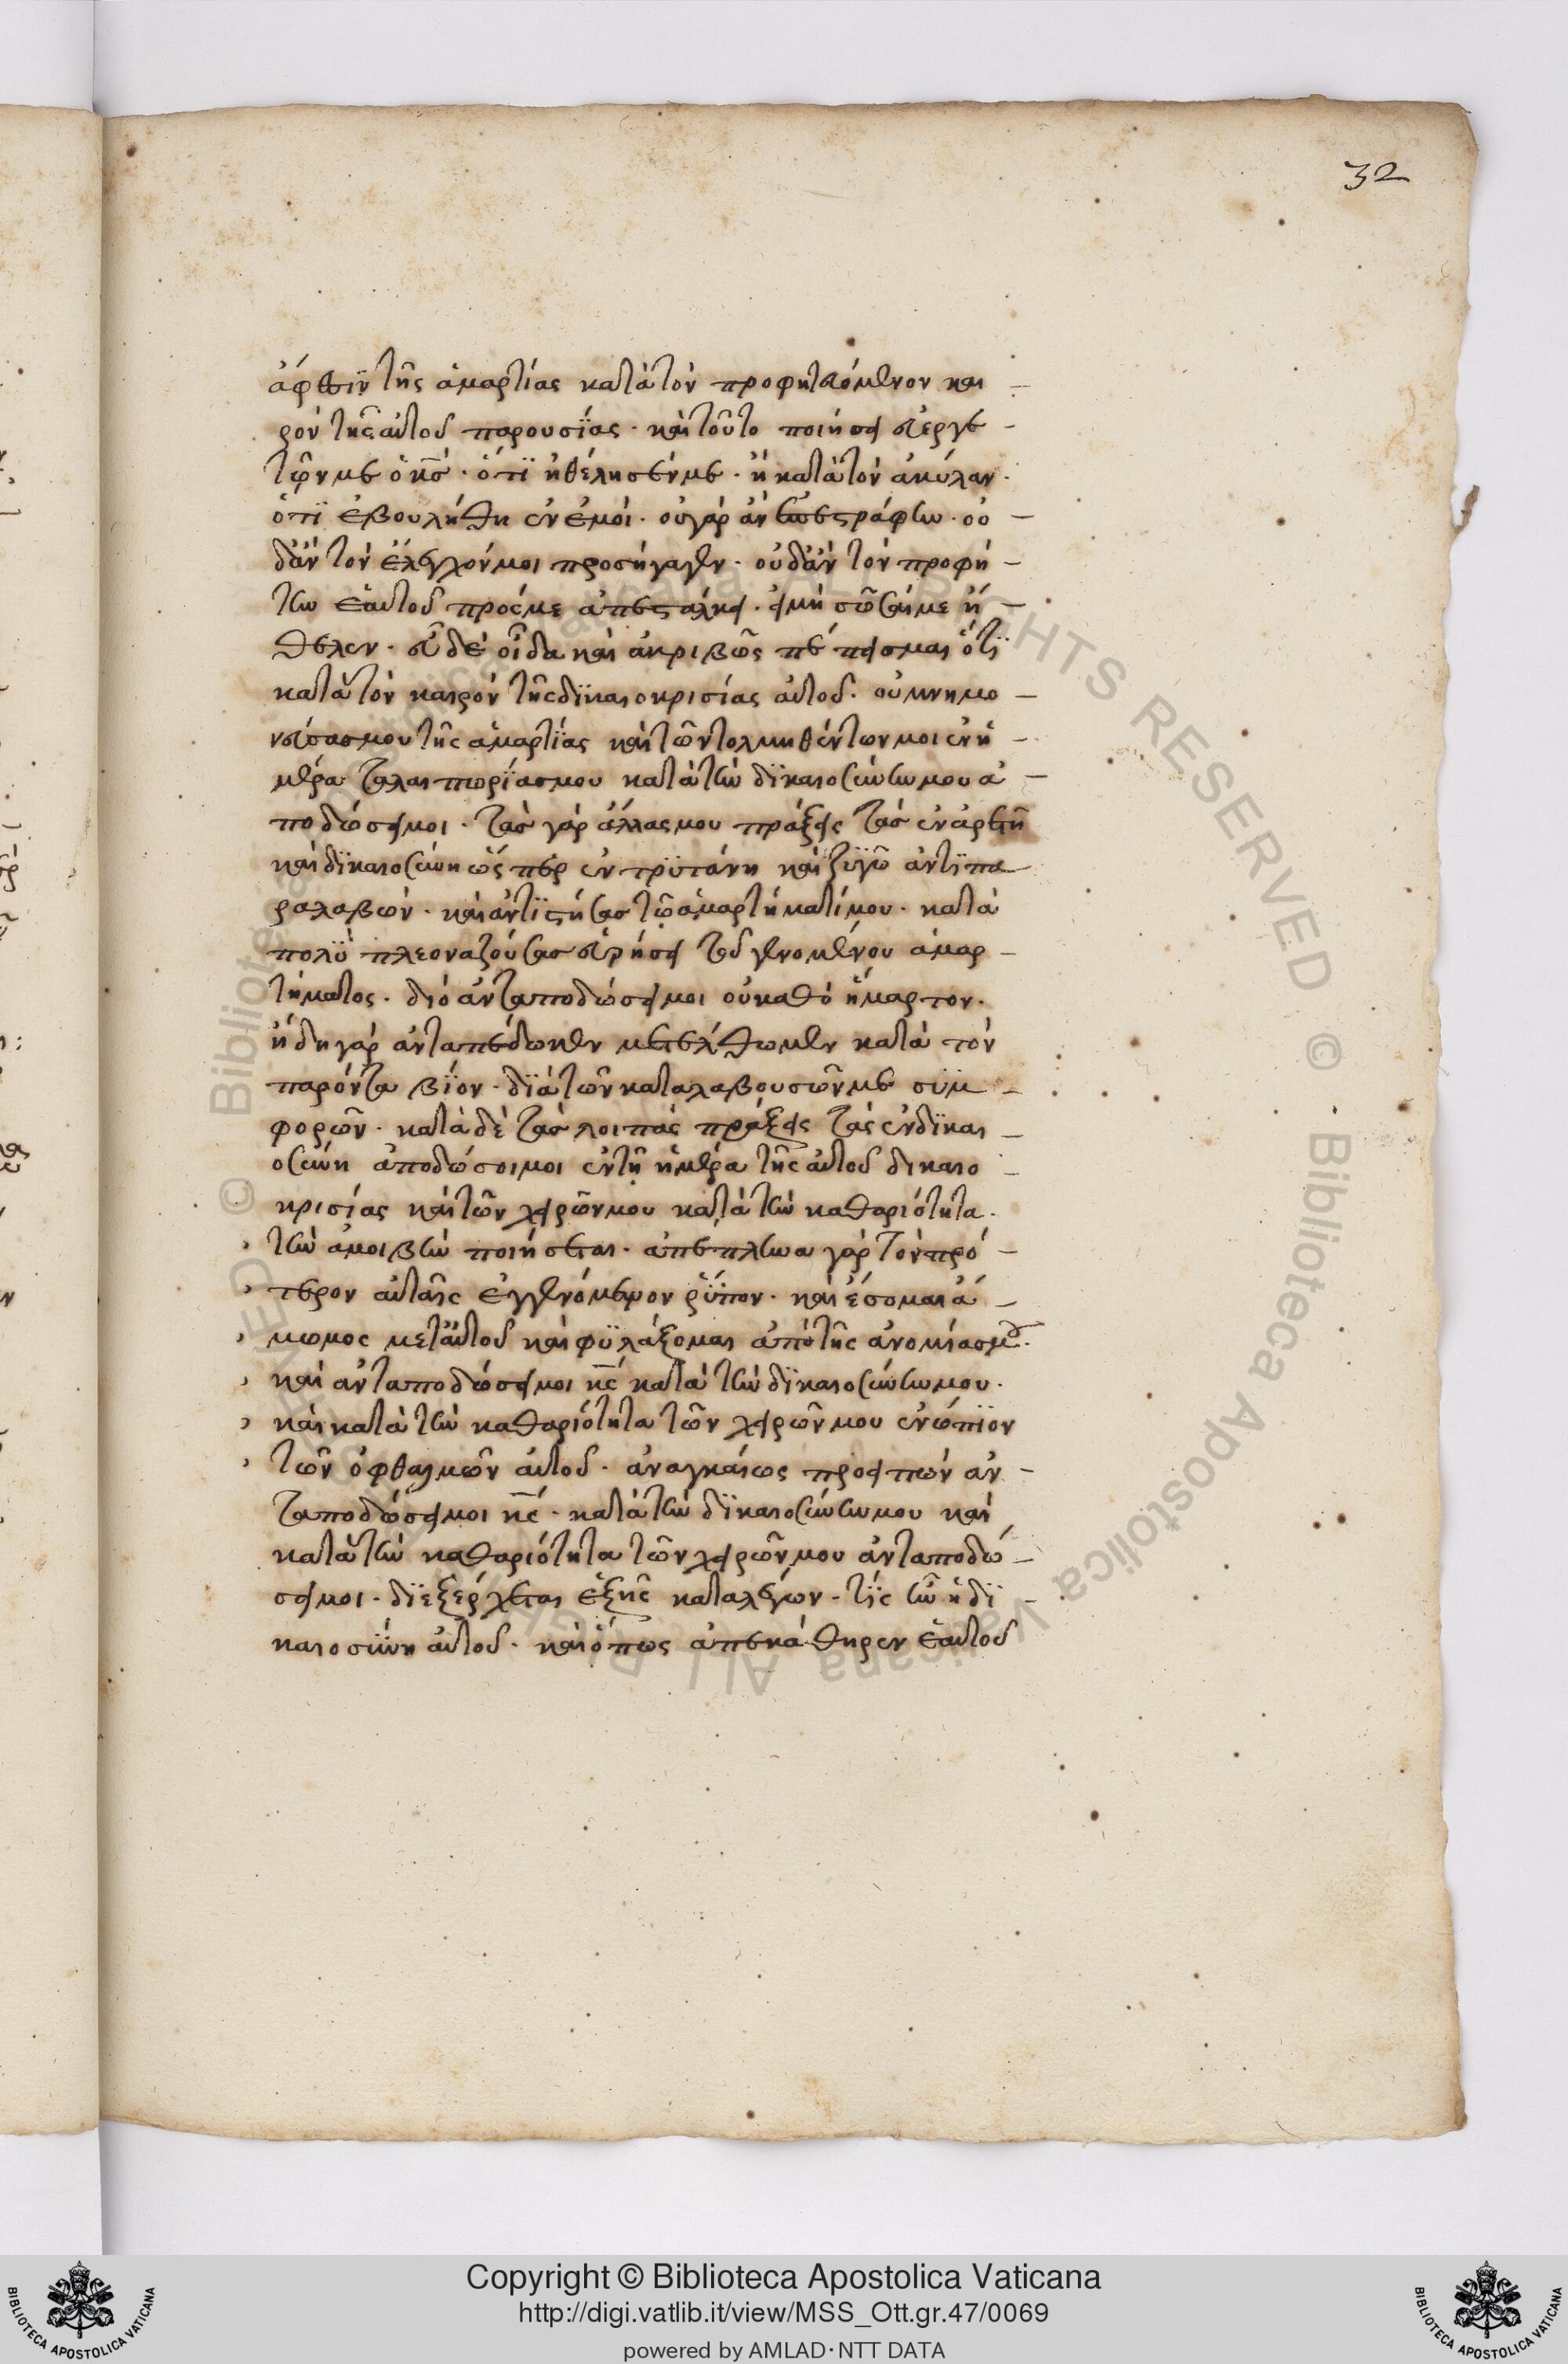 32
ἄφεσιν τῆς ἁμαρτίας κατὰ τὸν προφητευόμενον και
ρὸν τῆς αὐτοῦ παρουσίας · καὶ τοῦτο ποιήσει εὐεργε
τῶν με ὁ κς · ὅτι ἠθέλησέν με · ἢ κατὰ τὸν ἀκύλαν ·
ὅτι ἐβουλήθη ἐν ἐμοί · οὐ γὰρ ἂν ὑπεστράφην · οὐ
δ' ἂν τὸν ἔλεγχόν μοι προσήγαγεν · οὐδ' ἂν τὸν προφή
την ἑαυτοῦ πρός με ἀπεστάλκει · εἰ μὴ σῶσαί με ἤ
θελεν · εὖ δὲ οἶδα καὶ ἀκριβῶς πέπεισμαι ὅτι
κατὰ τὸν καιρὸν τῆς δικαιοκρισίας αὐτοῦ · οὐ μνημο
νεύσας μου τῆς ἁμαρτίας καὶ τῶν τολμηθέντων μοι ἐν ἡ
μέρᾳ ταλαιπωρίας μου κατὰ τὴν δικαιοσύνην μου ἀ
ποδώσει μοι · τὰς γὰρ ἄλλας μου πράξεις τὰς ἐν ἀρετῇ
καὶ δικαιοσύνη ὥσπερ ἐν τρυτάνη καὶ ζυγῷ ἀντιπα
ραλαβών · καὶ ἀντιστήσας τῷ ἁμαρτήματί μου · κατὰ
πολὺ πλεοναζούσας εὑρήσει τοῦ γενομένου ἁμαρ
τήματος · διὸ ἀνταποδώσει μοι οὐ καθὸ ἥμαρτον ·
ἤδη γὰρ ἀνταπέδωκεν μετελθὼν κατὰ τὸν
παρόντα βίον · διὰ τῶν καταλαβουσῶν με συμ
φορῶν · κατὰ δὲ τὰς λοιπὰς πράξεις τὰς ἐν δικαι
οσύνη ἀποδώσοι μοι ἐν τῇ ἡμέρα τῆς αὐτοῦ δικαιο
κρισίας καὶ τῶν χειρῶν μου κατὰ τὴν καθαριότητα ·
τὴν ἀμοιβὴν ποιήσεται · ἀπέπλυνα γὰρ τὸν πρό
τερον αὐταῖς ἐγγενόμενον ῥύπον · καὶ ἔσομαι ἄ
μωμος μετ' αὐτοῦ καὶ φυλάξομαι ἀπὸ τῆς ἀνομίας μου ·
καὶ ἀνταποδώσει μοι κς κατὰ τὴν δικαιοσύνην μου ·
καὶ κατὰ τὴν καθαριότητα τῶν χειρῶν μου ἐνώπιον
τῶν ὀφθαλμῶν αὐτοῦ · ἀναγκαίως προειπὼν ἀν
ταποδώσει μοι κς · κατὰ τὴν δικαιοσύνην μου καὶ
κατὰ τὴν καθαριότητα τῶν χειρῶν μου ἀνταποδώ
σει μοι · διεξέρχεται ἑξῆς καταλέγων · τίς ἦν ἡ δι
καιοσύνη αὐτοῦ · καὶ ὅπως ἀπεκάθηρεν ἑαυτοῦ
Copyright © Biblioteca Apostolica Vaticana
http://digi.vatlib.it/view/MSS_Ott.gr.47/0069
powered by AMLAD·NTT DATA
BIBLIOTECA APOSTOLICA VATICANA
BIBLIOTECA APOSTOLICA VATICANA